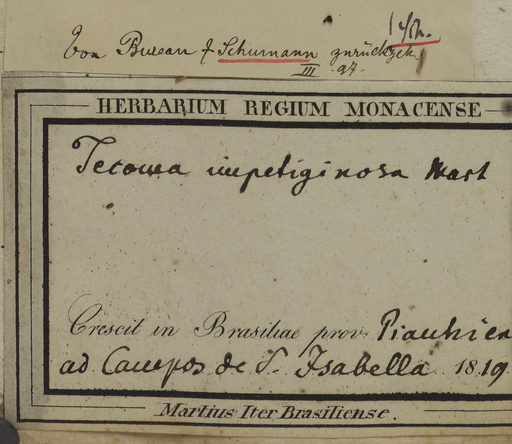 Von Bureau & Schumann zurück
III. 97.
HERBARIUM REGIUM MONACENSE
Tecoma impetiginosa Mart
Crescit in Brasiliae prov. Piauhien
ad Campos de S. Isabella 1819
Martius Iter Brasiliense.